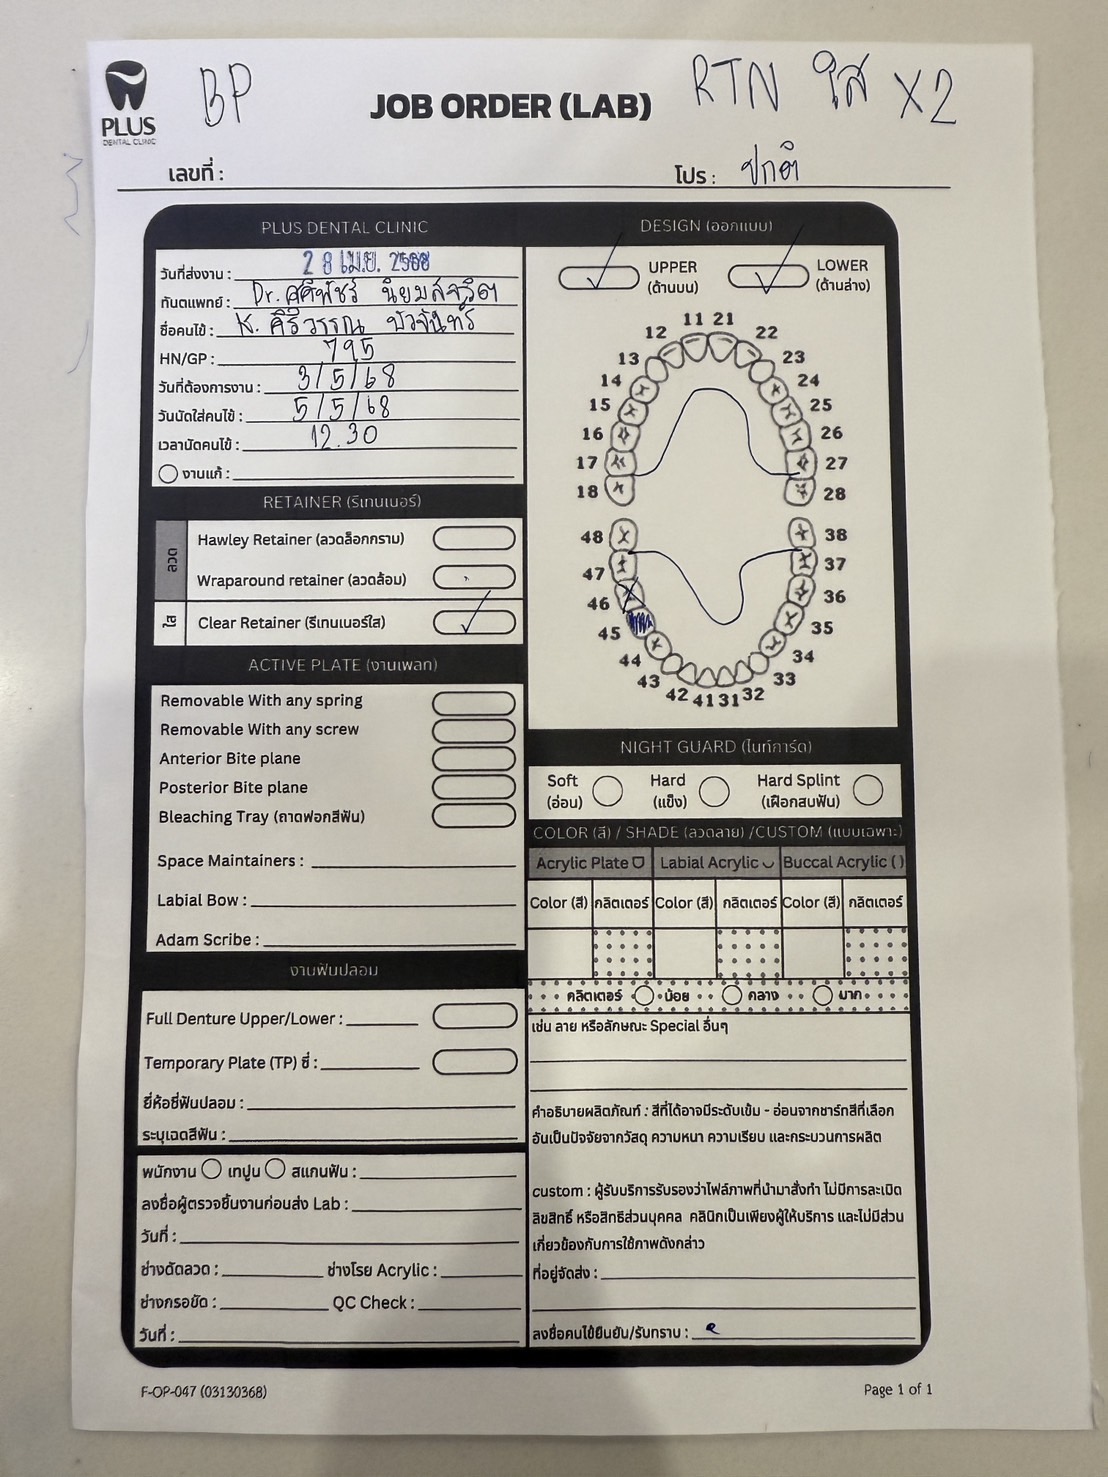 BP
RTN ใส X2
PLUS
DENTAL CLINIC
JOB ORDER (LAB)
เลขที่ :
โปร : ปกติ
PLUS DENTAL CLINIC
วันที่ส่งงาน : 28 เม.ย. 2568
ทันตแพทย์ : Dr. ศศิพัชร์ นิยมสุจริต
ชื่อคนไข้ : K. ศิริวรรณ บัวจันทร์
HN/GP : 795
วันที่ต้องการงาน : 3/5/68
วันนัดใส่คนไข้ : 5/5/68
เวลานัดคนไข้ : 12.30
งานแก้ :
RETAINER (รีเทนเนอร์)
ลวด
Hawley Retainer (ลวดล็อกกราม)
Wraparound retainer (ลวดล้อม)
ใส
Clear Retainer (รีเทนเนอร์ใส)
ACTIVE PLATE (งานเพลท)
Removable With any spring
Removable With any screw
Anterior Bite plane
Posterior Bite plane
Bleaching Tray (ถาดฟอกสีฟัน)
Space Maintainers :
Labial Bow :
Adam Scribe :
งานฟันปลอม
Full Denture Upper/Lower :
Temporary Plate (TP) ซี่ :
ยี่ห้อซี่ฟันปลอม :
ระบุเฉดสีฟัน :
พนักงาน เทปูน สแกนฟัน :
ลงชื่อผู้ตรวจชิ้นงานก่อนส่ง Lab :
วันที่ :
ช่างดัดลวด : ช่างโรย Acrylic :
ช่างกรอขัด : QC Check :
วันที่ :
DESIGN (ออกแบบ)
UPPER
(ด้านบน)
LOWER
(ด้านล่าง)
11 21
12 22
13 23
14 24
15 25
16 26
17 27
18 28
48 38
47 37
46 36
45 35
44 34
43 33
42 41 31 32
NIGHT GUARD (ไนท์การ์ด)
Soft
(อ่อน)
Hard
(แข็ง)
Hard Splint
(เฝือกสบฟัน)
COLOR (สี) / SHADE (ลวดลาย) /CUSTOM (แบบเฉพาะ)
Acrylic Plate Labial Acrylic Buccal Acrylic ( )
Color (สี) กลิตเตอร์ Color (สี) กลิตเตอร์ Color (สี) กลิตเตอร์
กลิตเตอร์ น้อย กลาง มาก
เช่น ลาย หรือลักษณะ Special อื่นๆ
คำอธิบายผลิตภัณฑ์ : สีที่ได้อาจมีระดับเข้ม - อ่อนจากชาร์ทสีที่เลือก
อันเป็นปัจจัยจากวัสดุ ความหนา ความเรียบ และกระบวนการผลิต
custom : ผู้รับบริการรับรองว่าไฟล์ภาพที่นำมาสั่งทำ ไม่มีการละเมิด
ลิขสิทธิ์ หรือสิทธิส่วนบุคคล คลินิกเป็นเพียงผู้ให้บริการ และไม่มีส่วน
เกี่ยวข้องกับการใช้ภาพดังกล่าว
ที่อยู่จัดส่ง :
ลงชื่อคนไข้ยืนยัน/รับทราบ :
F-OP-047 (03130368)
Page 1 of 1